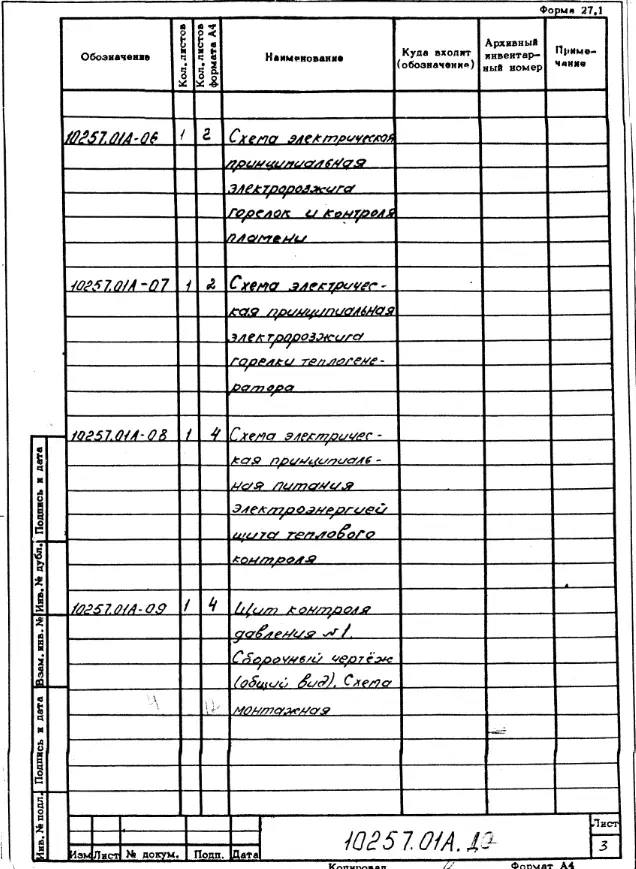 Форма 27,1
Обозначение
Кол. листов
Кол. листов формата А4
Наименование
Куда входит (обозначение)
Архивный инвентарный номер
Примечание
10257.01А-06 1 2 Схема электрическая
принципиальная
электророзжига
горелок и контроля
пламени
10257.01А-07 1 2 Схема электричес-
кая принципиальная
электророзжига
горелки теплогене-
ратора
10257.01А-08 1 4 Схема электричес-
кая принципиаль-
ная питания
электроэнергией
щита теплового
контроля
10257.01А-09 1 4 Щит контроля
давления №1.
Сборочный чертёж
(общий вид). Схема
монтажная
Инв. № подл. Подпись и дата Взам. инв. № Инв. № дубл. Подпись и дата
Изм Лист № докум. Подп. Дата
10257.01А.
Лист
3
Копировал
Формат А4